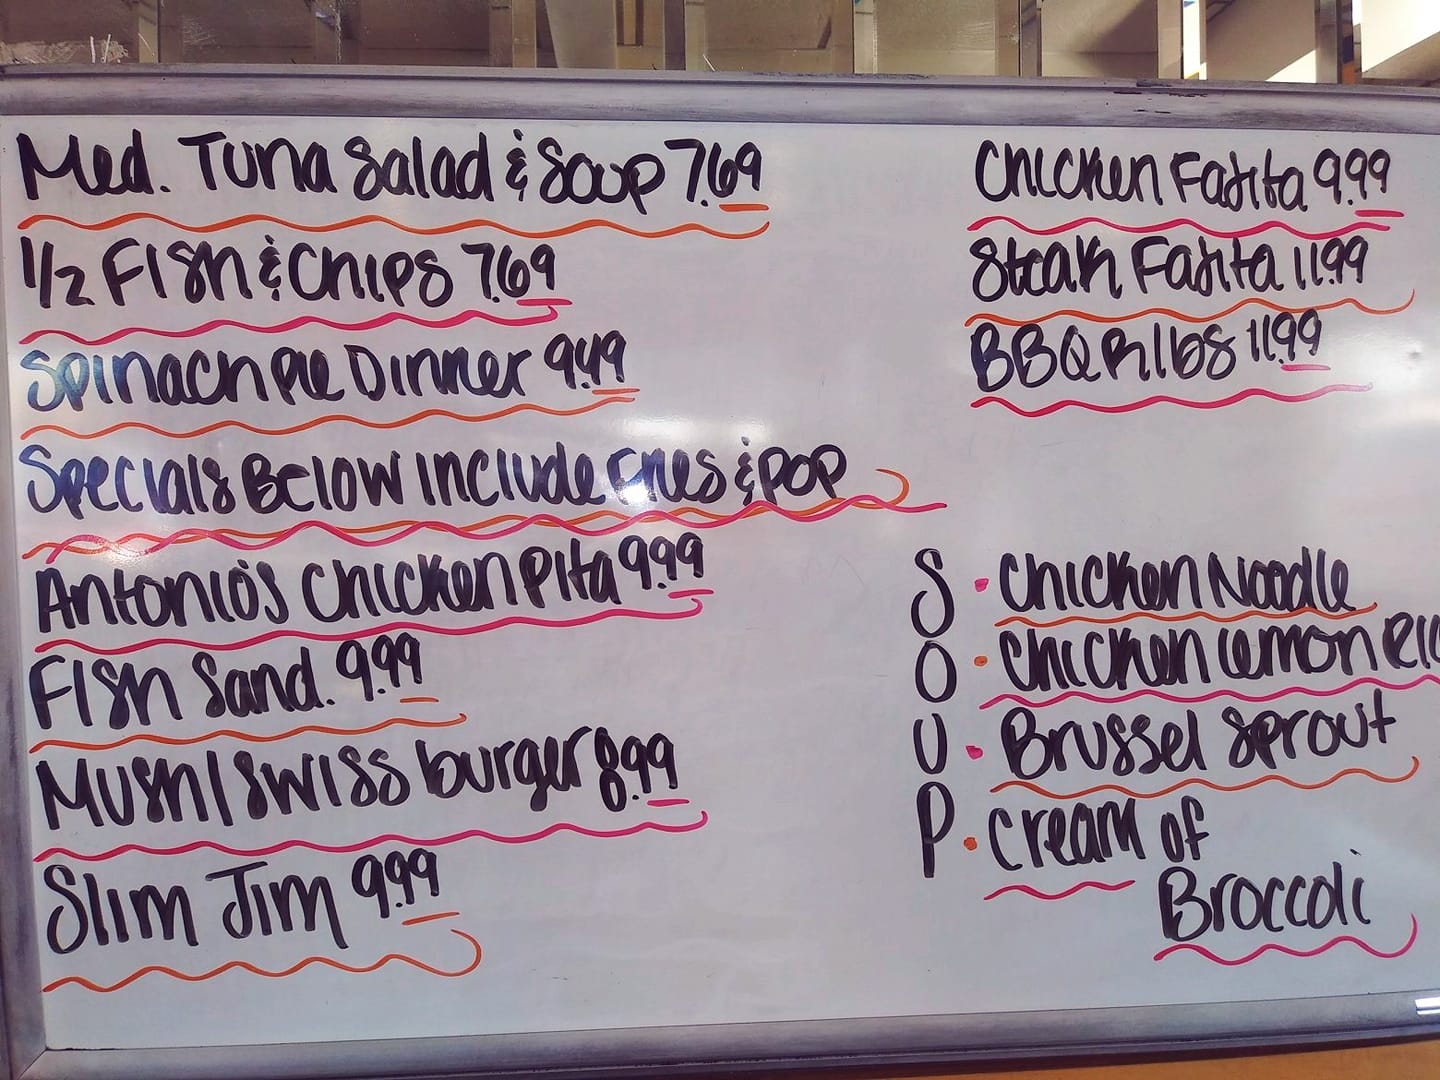 Med. Tuna Salad & Soup 7.69
1/2 Fish & Chips 7.69
Spinach Pie Dinner 9.49
Specials Below Include Fries & Pop
Antonio's Chicken Pita 9.99
Fish Sand. 9.99
Mush/Swiss burger 8.99
Slim Jim 9.99
Chicken Fajita 9.99
Steak Fajita 11.99
BBQ Ribs 11.99
SOUP
• Chicken Noodle
• Chicken Lemon
• Brussel Sprout
• Cream of
Broccoli